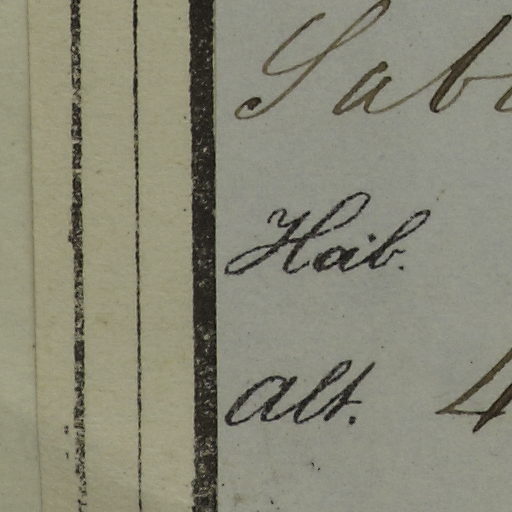 Sab
Hab.
alt. 4